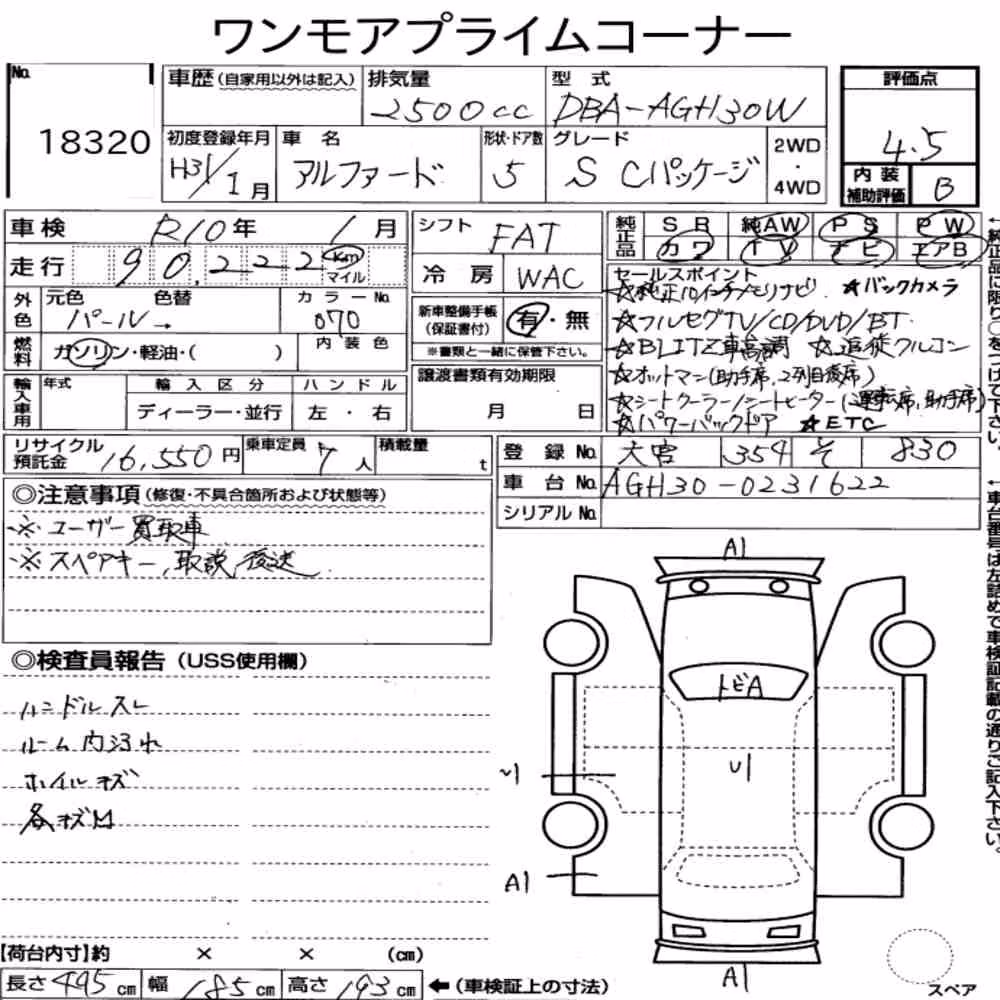 ワンモアプライムコーナー
No.
18320
車歴(自家用以外は記入)
排気量
2500cc
型 式
DBA-AGH30W
評価点
4.5
初度登録年月
H31/1月
車 名
アルファード
形状・ドア数
5
グレード
S Cパッケージ
2WD
・
4WD
内装
補助評価
B
車検
R10年 1月
走行
90,222 Km
マイル
シフト
FAT
冷 房
WAC
純正品
SR 純AW PS PW
カワ TV ナビ エアB
外色
元色 色替
パール→
カラーNo.
070
内装色
燃料
ガソリン・軽油・( )
新車整備手帳
(保証書付)
有・無
※書類と一緒に保管下さい。
輸入車用
年式
輸入区分
ディーラー・並行
ハンドル
左 ・ 右
譲渡書類有効期限
月 日
セールスポイント
☆純正10インチメモリナビ ☆バックカメラ
☆フルセグTV/CD/DVD/BT
☆BLITZ車高調 ☆追従クルコン
☆オットマン(助手席、2列目後席)
☆シートクーラー/シートヒーター(運転席、助手席)
☆パワーバックドア ☆ETC
リサイクル
預託金
16,550円
乗車定員
7人
積載量
t
登 録 No.
大宮 354 そ 830
車 台 No.
AGH30-0231622
シリアル No.
◎注意事項(修復・不具合箇所および状態等)
※ユーザー買取車
※スペアキー、取説後送
◎検査員報告(USS使用欄)
ハンドルスレ
ルーム内汚れ
ホイルキズ
各キズ凹
A1
トビA
U1
A1
A1
スペア
【荷台内寸】約 × × (cm)
長さ495cm 幅185cm 高さ193cm ←(車検証上の寸法)
←純正品に限り○をつけて下さい。
←車台番号は左詰めで車検証記載の通りご記入下さい。